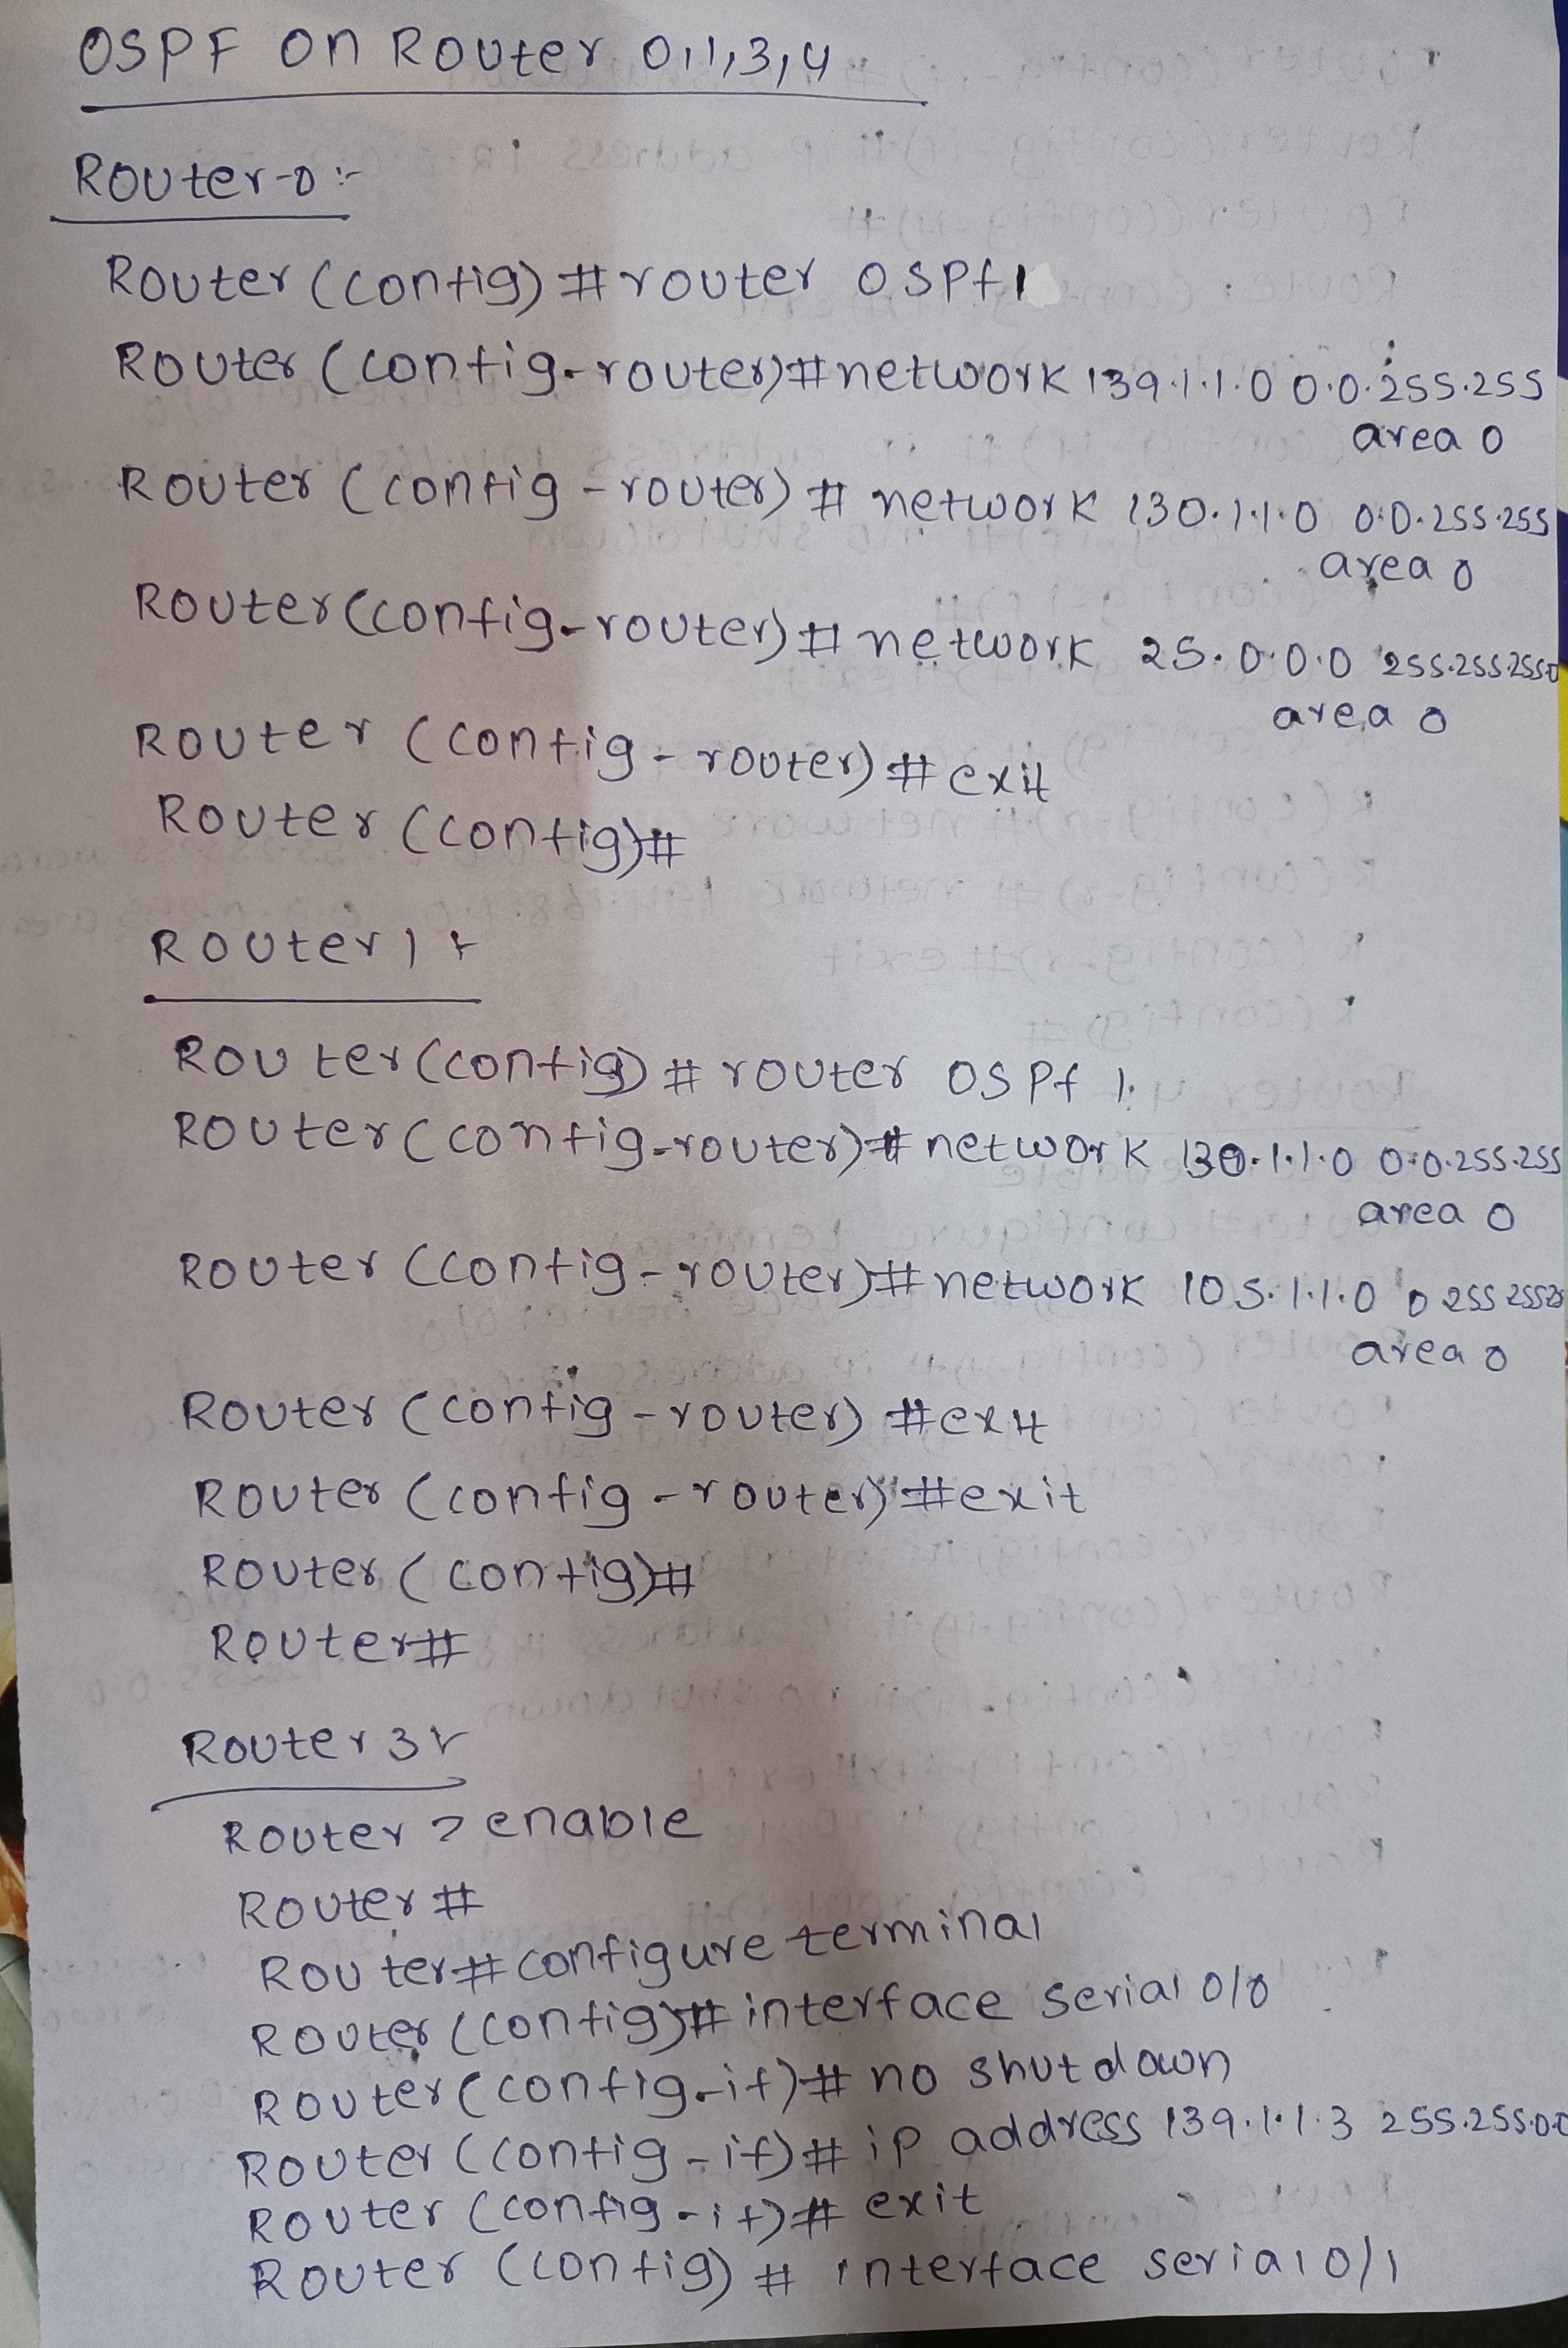 OSPF on Router 0,1,3,4
Router-0:-
Router(config)#router ospf1
Router(config-router)#network 139.1.1.0 0.0.255.255
area 0
Router(config-router)# network 130.1.1.0 0.0.255.255
area 0
Router(config-router)# network 25.0.0.0 255.255.255.0
area 0
Router (config-router)#exit
Router (config)#
Router 1 :-
Router(config)# router ospf 1
Router(config-router)#network 130.1.1.0 0.0.255.255
area 0
Router (config-router)#network 105.1.1.0 0 255 255 25
area 0
Router (config-router) #exit
Router (config-router)#exit
Router (config)#
Router#
Router 3 :-
Router > enable
Router #
Router#configure terminal
Router(config)# interface serial 0/0
Router(config-if)# no shutdown
Router (config-if)# ip address 139.1.1.3 255.255.0.0
Router (config-if)# exit
Router (config) # interface serial 0/1